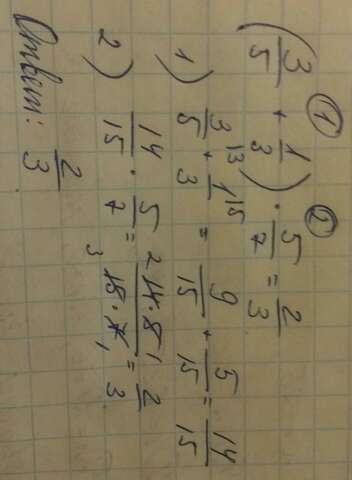 ① ②
(3/5 + 1/3) · 5/7 = 2/3
1) 3/5 ⁽³ + 1/3 ⁽⁵ = 9/15 + 5/15 = 14/15
2) 14/15 · 5/7 = ²14·5¹/₃15·7₁ = 2/3
Ответ: 2/3